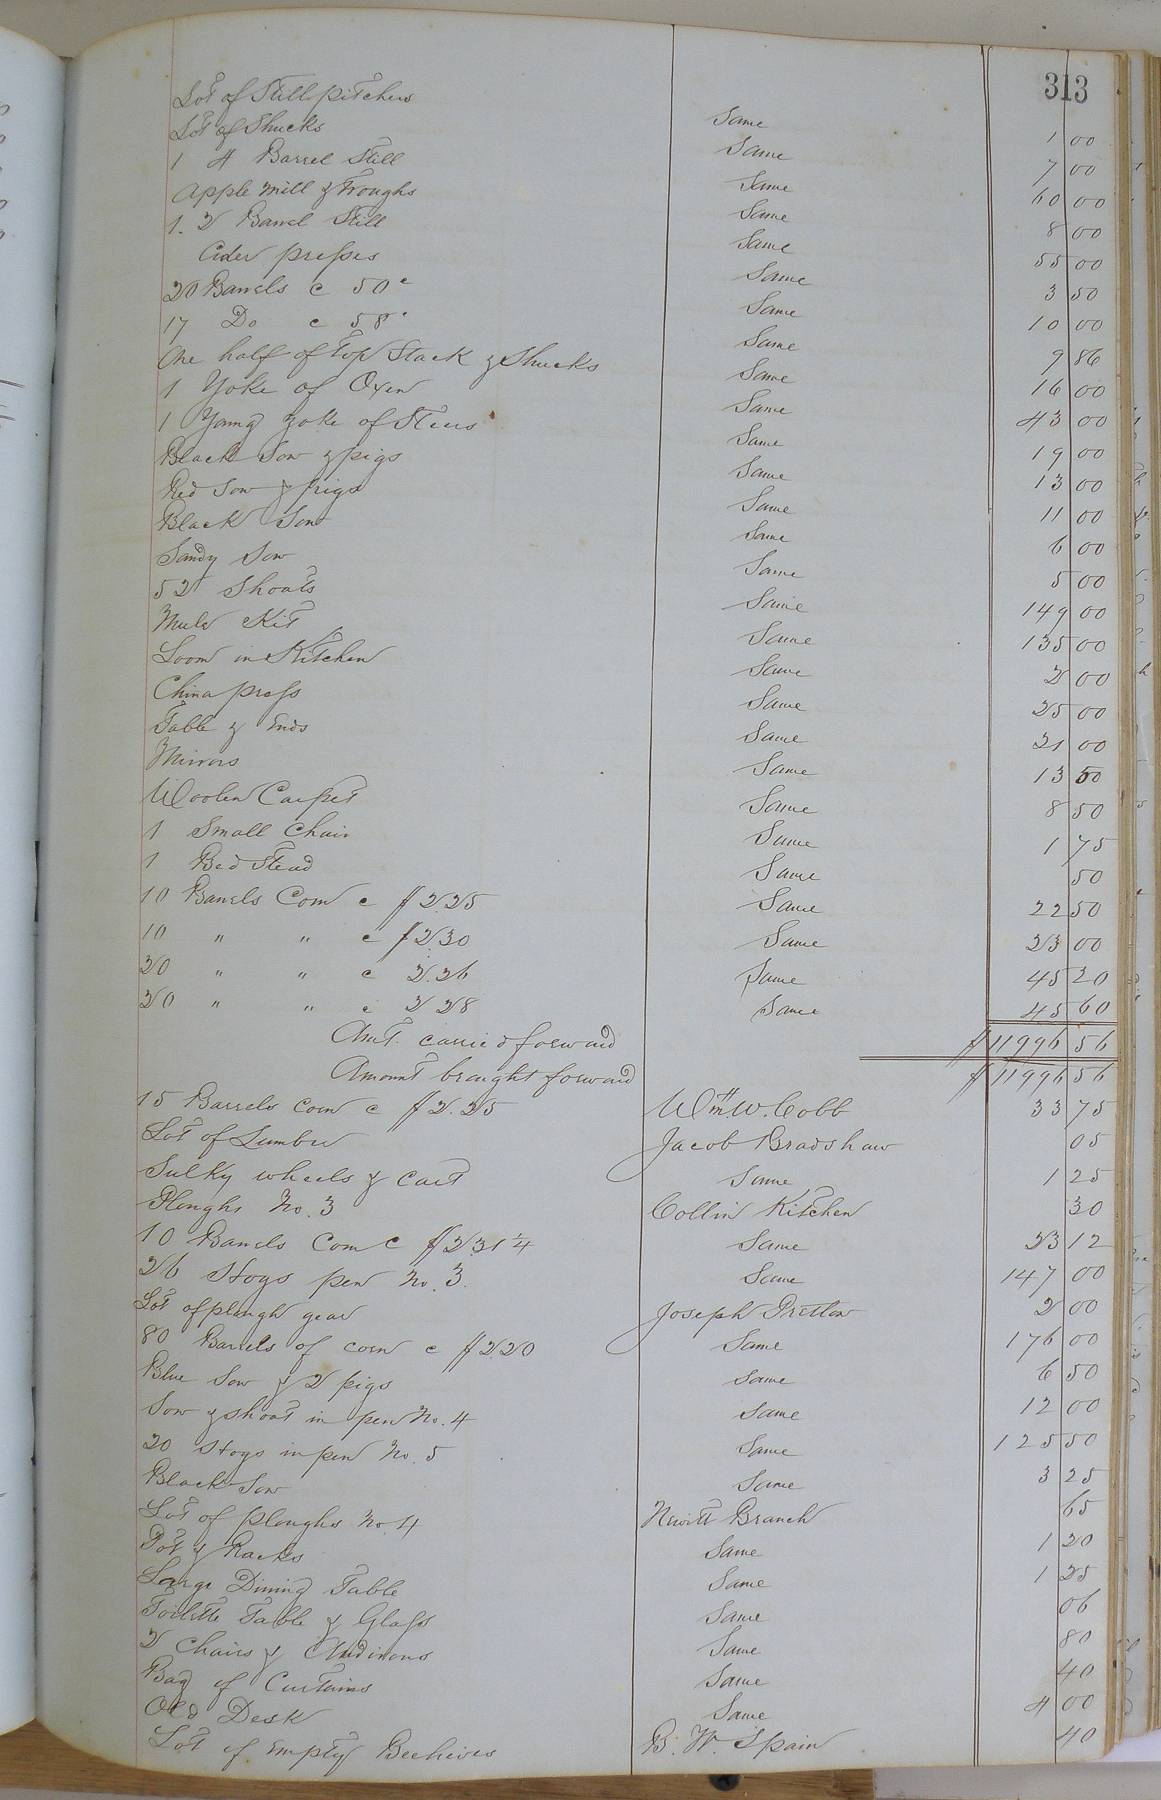 313
Lot of Still pitchers Same 1 00
Lot of Shucks Same 7 00
1 4 Barrel Still Same 60 00
Apple Mill & Troughs Same 8 00
1. 2 Barrel Still Same 55 00
Cider presses Same 3 50
20 Barrels @ 50c Same 10 00
17 Do @ 58c Same 9 86
One half of top Stack & Shucks Same 16 00
1 Yoke of Oxen Same 43 00
1 Young yoke of Steers Same 19 00
Black Sow & pigs Same 13 00
Red Sow & pigs Same 11 00
Black Sow Same 6 00
Sandy Sow Same 5 00
52 Shoats Same 149 00
Mule Kit Same 135 00
Loom in Kitchen Same 2 00
China press Same 25 00
Table & Ends Same 21 00
Mirrors Same 13 50
Woolen Carpet Same 8 50
1 Small Chair Same 1 75
1 Bed Stead Same 50
10 Barrels Corn @ $2.25 Same 22 50
10 " " @ $2.30 Same 23 00
20 " " @ 2.26 Same 45 20
20 " " @ 2 28 Same 45 60
Amt. carried forward $11996 56
Amount brought forward $11996 56
15 Barrels corn @ $2.25 Wm. W. Cobb 33 75
Lot of Lumber Jacob Bradshaw 05
Sulky wheels & cart Same 1 25
Ploughs No. 3 Collin Kitchen 30
10 Barrels Corn @ $2.31 1/4 Same 23 12
26 Hogs pen No. 3. Same 147 00
Lot of plough gear Joseph 2 00
80 Barrels of corn @ $2.20 Same 176 00
Blue Sow & 2 pigs Same 6 50
Sow & shoat in pen No. 4 Same 12 00
20 Hogs in pen No. 5 Same 125 50
Black Sow Same 3 25
Lot of ploughs No. 4 Branch 65
Pot & Racks Same 1 20
Large Dining Table Same 1 25
Toilette Table & Glass Same 06
2 Chairs & Andirons Same 80
Bag of Curtains Same 40
Old Desk Same 4 00
Lot of Empty Beehives B. W. Spain 40